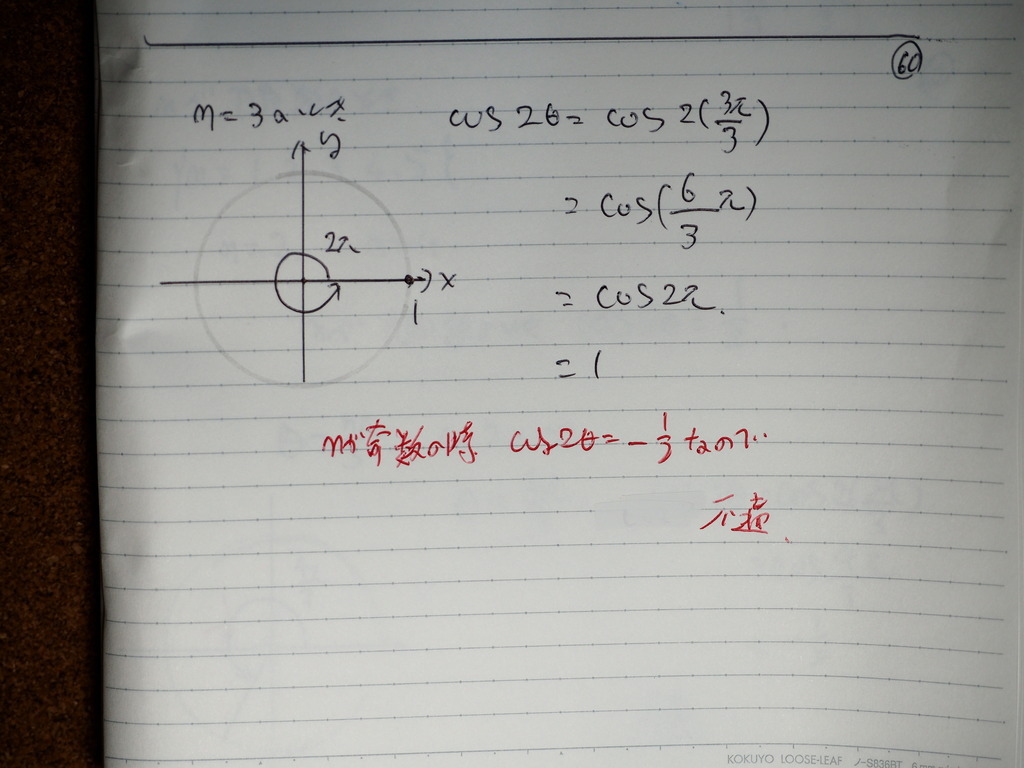 60
n=3のとき
cos2θ = cos2(3π/3)
y
= cos(6/3 π)
2π
x
1
= cos2π.
= 1
nが奇数の時 cos2θ = -1/3 なので..
不適.
KOKUYO LOOSE-LEAF ノ-S836BT 6mm